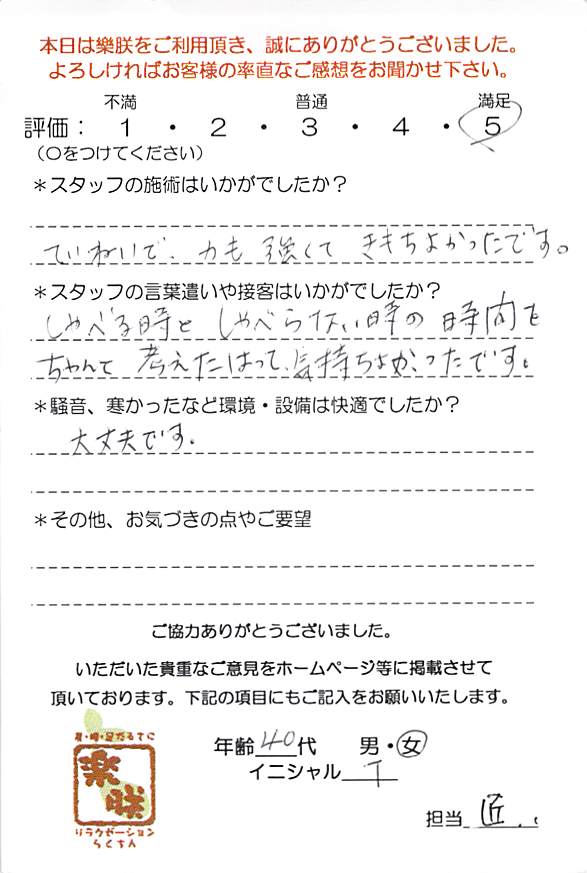 本日は樂朕をご利用頂き、誠にありがとうございました。
よろしければお客様の率直なご感想をお聞かせ下さい。
不満 普通 満足
評価： 1 ・ 2 ・ 3 ・ 4 ・ 5
（○をつけてください）
＊スタッフの施術はいかがでしたか？
ていねいで、力も強くて きもちよかったです。
＊スタッフの言葉遣いや接客はいかがでしたか？
しゃべる時と しゃべらない時の 時間を
ちゃんと 考えたはって、気持ちよかったです。
＊騒音、寒かったなど環境・設備は快適でしたか？
大丈夫です。
＊その他、お気づきの点やご要望
ご協力ありがとうございました。
いただいた貴重なご意見をホームページ等に掲載させて
頂いております。下記の項目にもご記入をお願いいたします。
年齢 40 代 男・女
イニシャル T
担当 匠
肩・腰・足だるでに
樂朕
リラクゼーション
らくちん